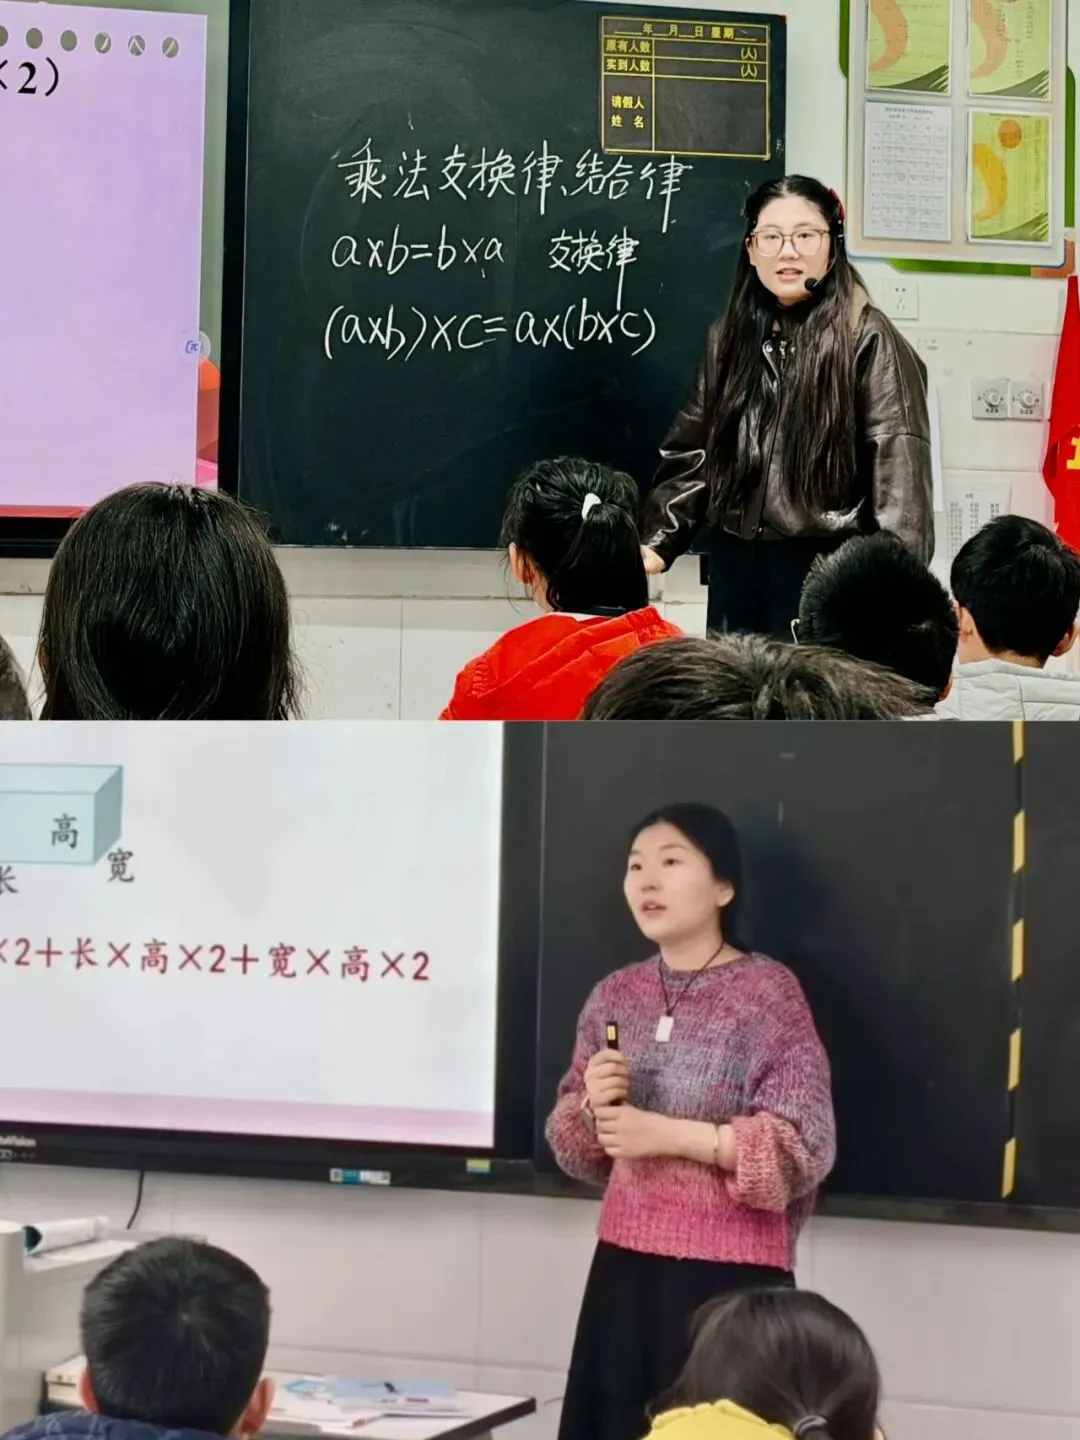 ×2）
年 月 日 星期
原有人数 （人）
实到人数 （人）
请假人
姓 名
乘法交换律、结合律
a×b=b×a 交换律
(a×b)×c=a×(b×c)
高
长 宽
×2＋长×高×2＋宽×高×2